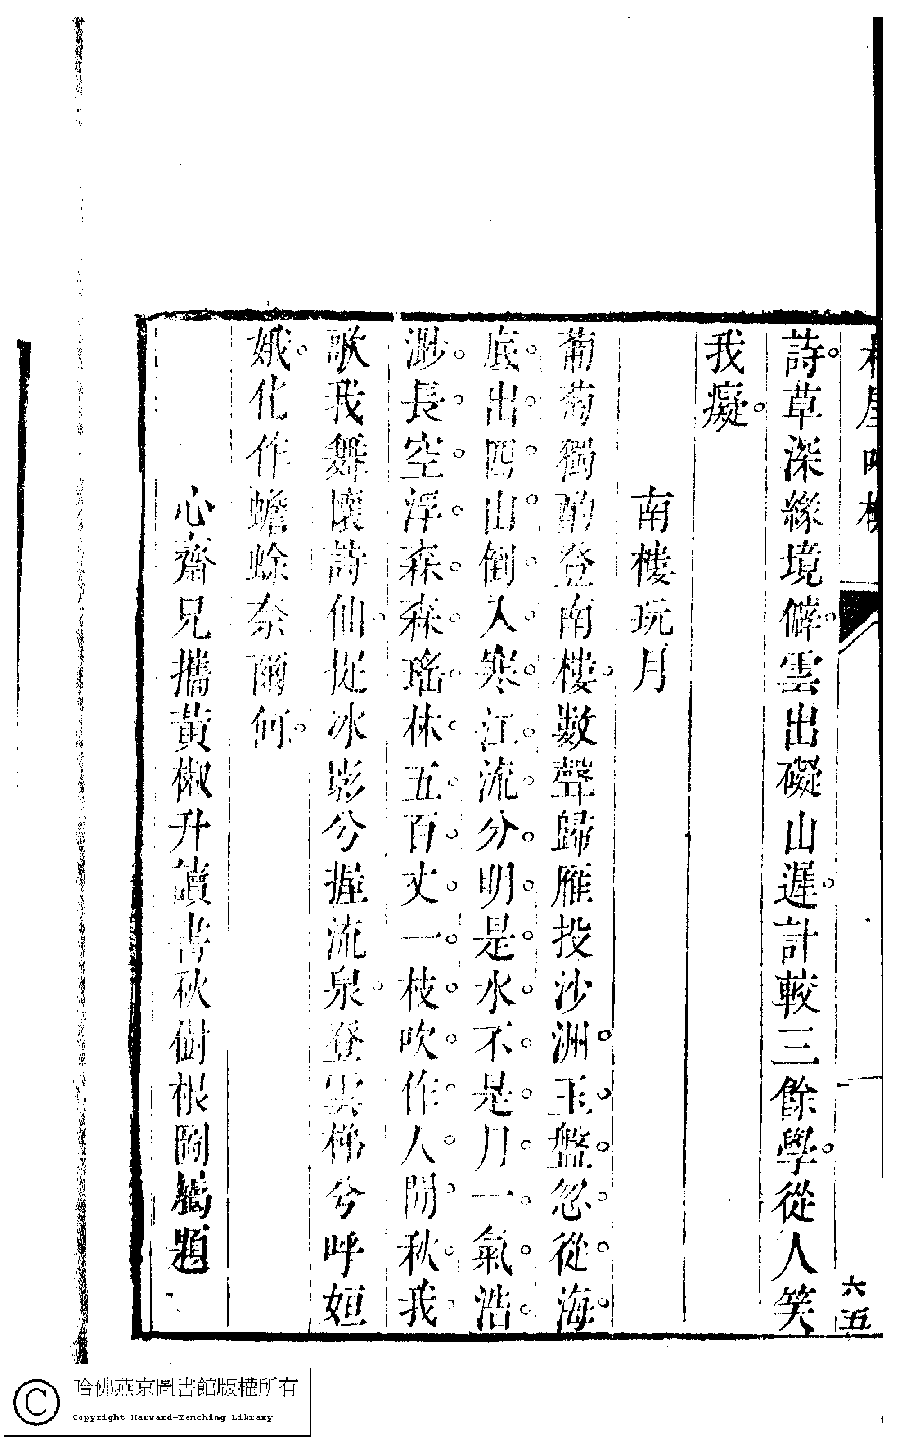 詩草深緣境僻雲出礙山遲計較三餘學從人笑
我癡
南樓玩月
葡萄獨酌登南樓數聲歸雁投沙洲玉盤忽從海
底出四山倒入寒江流分明是水不是月一氣浩
渺長空浮森森瑤林五百丈一枝吹作人間秋我
歌我舞懷詩仙捉冰影兮握流泉登雲梯兮呼姮
娥化作蟾蜍奈爾何
心齋兄攜黃椒升讀書秋樹根圖屬題
六五
哈佛燕京圖書館版權所有
Copyright Harvard-Yenching Library